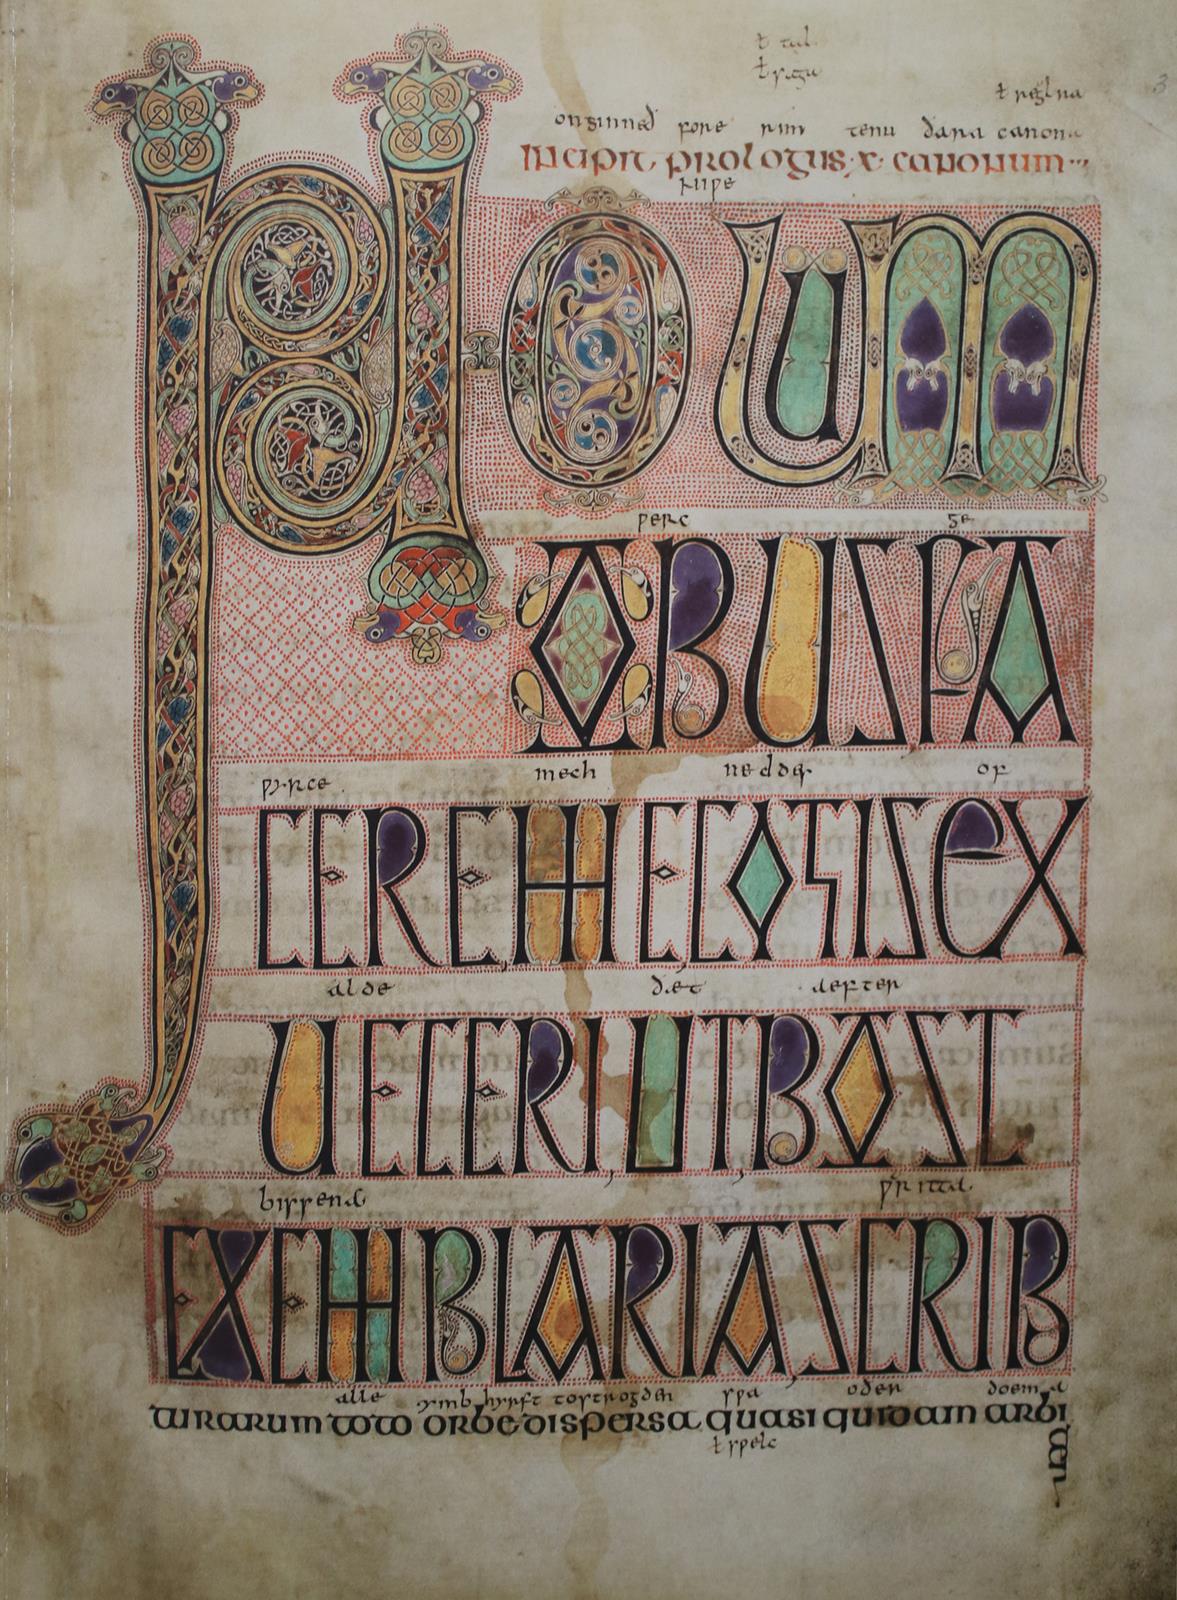 ł tal
ł regu
ł reglua
onginneð fore rim tenu ðara canona
Incipit prologus x canonum
niwe
NOUM
werc ge
OPUSFA
wyrce mech neddes of
CEREMECOGISEX
alde ðæt aefter
UETERIUTPOST
bissena writta
EXEMPLARIASCRIP
alle ymb hwyrft tostrogden swa oðer doema
turarum toto orbe dispersa quasi quidam arbi
ter
ł swelc